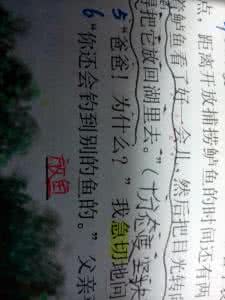 点，距离开放捕捞鲈鱼的时间还有两
鲈鱼看了好一会儿，然后把目光转
得把它放回湖里去。”（态度坚决
5 “爸爸！为什么？”我急切地问
6 “你还会钓到别的鱼的。”父亲
放鱼